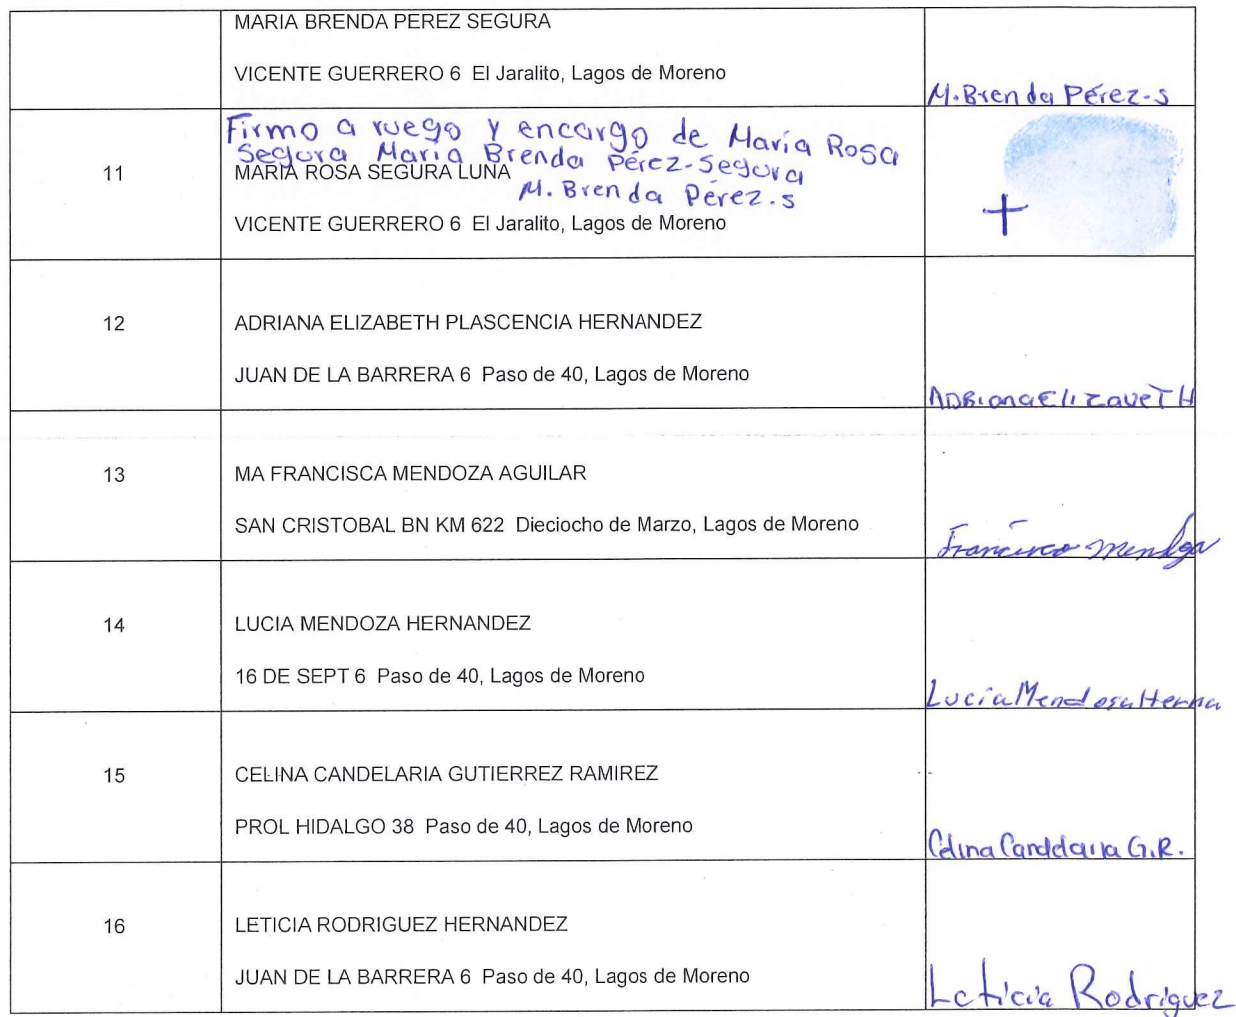 MARIA BRENDA PEREZ SEGURA
VICENTE GUERRERO 6 El Jaralito, Lagos de Moreno
M. Brenda Pérez-s
Firmo a ruego y encargo de María Rosa
Segura María Brenda Pérez-Segura
11
MARIA ROSA SEGURA LUNA
M. Brenda Pérez.s
VICENTE GUERRERO 6 El Jaralito, Lagos de Moreno
+
12
ADRIANA ELIZABETH PLASCENCIA HERNANDEZ
JUAN DE LA BARRERA 6 Paso de 40, Lagos de Moreno
ADRiana Elizaveth
13
MA FRANCISCA MENDOZA AGUILAR
SAN CRISTOBAL BN KM 622 Dieciocho de Marzo, Lagos de Moreno
14
LUCIA MENDOZA HERNANDEZ
16 DE SEPT 6 Paso de 40, Lagos de Moreno
Lucía Mendosa Herna
15
CELINA CANDELARIA GUTIERREZ RAMIREZ
PROL HIDALGO 38 Paso de 40, Lagos de Moreno
Celina Candelaria G.R.
16
LETICIA RODRIGUEZ HERNANDEZ
JUAN DE LA BARRERA 6 Paso de 40, Lagos de Moreno
Leticia Rodriguez